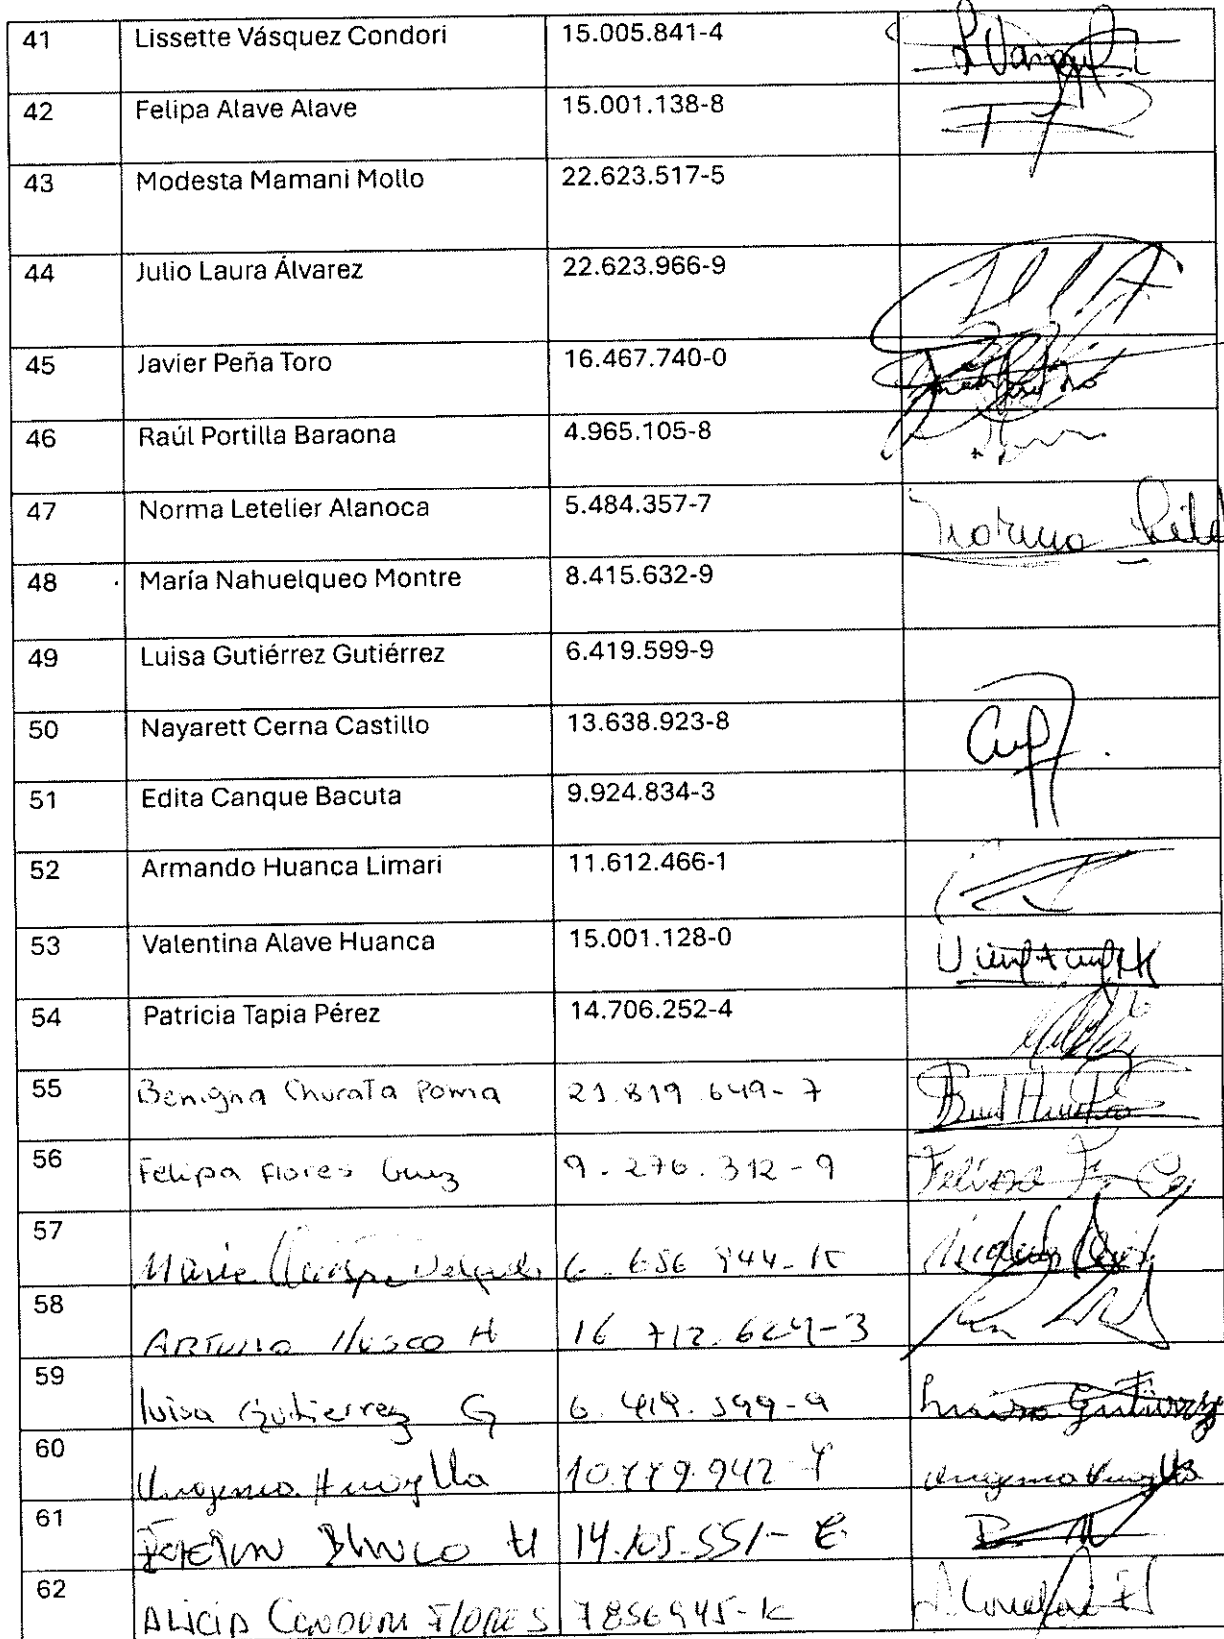 41 Lissette Vásquez Condori 15.005.841-4
42 Felipa Alave Alave 15.001.138-8
43 Modesta Mamani Mollo 22.623.517-5
44 Julio Laura Álvarez 22.623.966-9
45 Javier Peña Toro 16.467.740-0
46 Raúl Portilla Baraona 4.965.105-8
47 Norma Letelier Alanoca 5.484.357-7 Norma
48 María Nahuelqueo Montre 8.415.632-9
49 Luisa Gutiérrez Gutiérrez 6.419.599-9
50 Nayarett Cerna Castillo 13.638.923-8
51 Edita Canque Bacuta 9.924.834-3
52 Armando Huanca Limari 11.612.466-1
53 Valentina Alave Huanca 15.001.128-0
54 Patricia Tapia Pérez 14.706.252-4
55 Benigna Churata Poma 21.819.649-7
56 Felipa Flores Cruz 9.276.312-9 Felipa
57 Maria Delgado
58 ARTURO H 16 712.624-3
59 luisa Gutierrez G 6.419.599-9 Luisa Gutierrez
60
61
62 ALICIA CONDORI FLORES 7856945-K